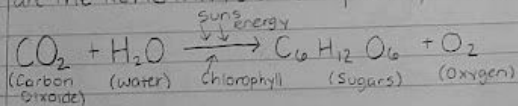 suns energy
CO₂ + H₂O → C₆ H₁₂ O₆ + O₂
(Carbon Dioxide) (water) Chlorophyll (Sugars) (Oxygen)